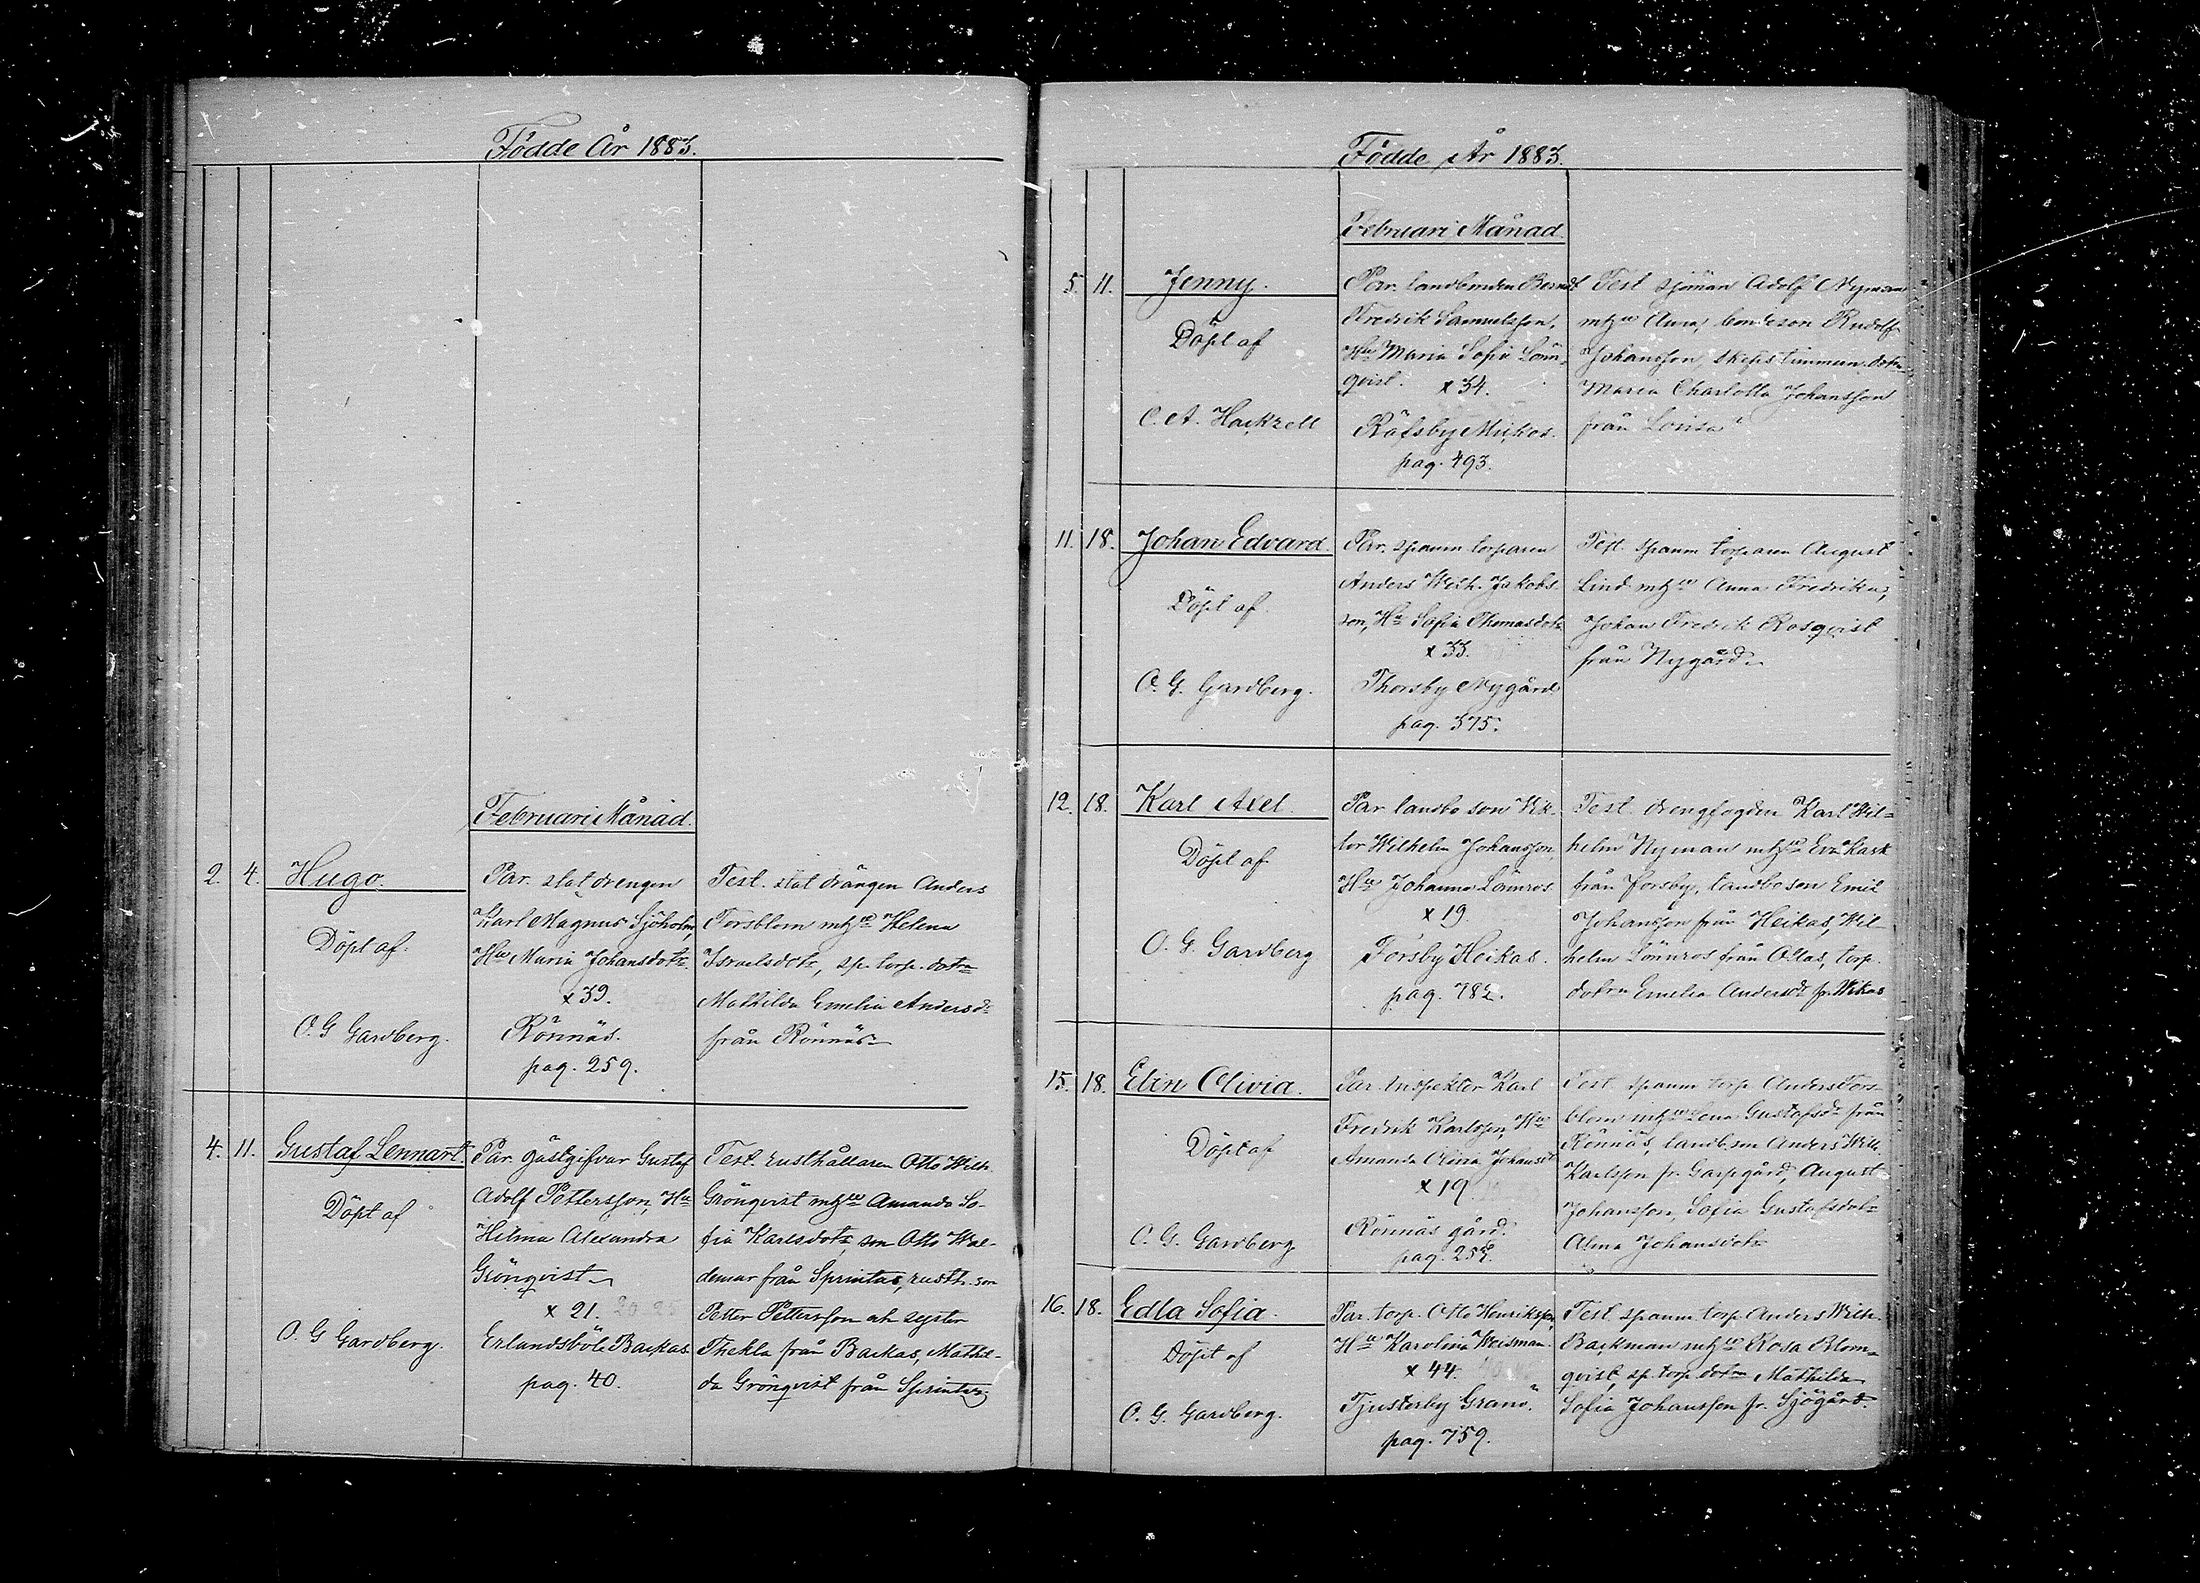 Födde År 1883.
Februari Månad.
2. 4. Hugo.
Döpt af
O. G Gardberg.
Par. stat drengen
Karl Magnus Sjöholm,
Hu Maria Johansdotr
x 39.
Rönnäs.
pag. 259.
Test. stat drängen Anders
Forsblom mhu Helena
Israelsdotr, sp. torp. dotrn
Mathilda Emelia Andersdr
från Rönnäs
4. 11. Gustaf Lennart.
Döpt af
O. G Gardberg.
Par. gästgifvar Gustaf
Adolf Pettersson, Hu
Hilma Alexandra
Grönqvist
x 21.
Erlandsböle Backas.
pag. 40.
Test. rusthållaren Otto Wilh.
Grönqvist mhu Amanda So-
fia Karlsdotr, son Otto Wal-
demar från Sprintas, rusth. son
Petter Pettersson och syster
Thekla från Backas, Mathil-
da Grönqvist från Sprintas.
Födde År 1883.
Februari Månad.
5. 11. Jenny.
Döpt af
C. A. Hackzell
Par. landbonden Berndt
Fredrik Samuelsson,
Hu Maria Sofia Lönn-
qvist. x 34.
Räfsby Mickos.
pag. 493.
Test. sjöman Adolf Nyman
mhu Anna, bondeson Rudolf
Johansson, skeps timmerm. dotrn
Maria Charlotta Johansson
från Lovisa
11. 18. Johan Edvard.
Döpt af
O. G. Gardberg.
Par. spanm torparen
Anders Wilh. Jakobs-
son, Hu Sofia Thomasdotr
x 33.
Thorsby Nygård
pag. 375.
Test. spanm torparen August
Lind mhu Anna Fredrika,
Johan Fredrik Rosqvist
från Nygård
12. 18. Karl Axel.
Döpt af
O. G. Gardberg
Par. landbo son Vik-
tor Wilhelm Johansson,
Hu Johanna Lönnros
x 19.
Forsby Heikas.
pag. 782.
Test. drengfogden Karl Wil-
helm Nyman mhu Eva Kask
från Forsby, landbo son Emil
Johansson från Heikas, Wil-
helm Lönnros från Ollas, torp.
dotrn Emelia Andersdr fr. Wikas
15. 18. Elin Olivia.
Döpt af
O. G. Gardberg
Par. Inspektor Karl
Fredrik Karlsson, Hu
Amanda Olivia Johansdr
x 19.
Rönnäs gård.
pag. 259.
Test. spanm torp. Anders Fors-
blom mhu Lena Gustafsdr från
Rönnäs, landb. son Anders Wilh.
Karlsson fr. Garpgård, August
Johansson, Sofia Gustafsdotr
Alma Johansdotr
16. 18. Edla Sofia.
Döpt af
O. G. Gardberg.
Par. torp. Otto Henriksson,
Hu Karolina Weisman.
x 44.
Tjusterby Granö.
pag. 759.
Test. spanm. torp. Anders Wilh.
Backman mhu Rosa Blom-
qvist, sp. torp. dotrn Mathilda
Sofia Johansson fr. Sjögård.